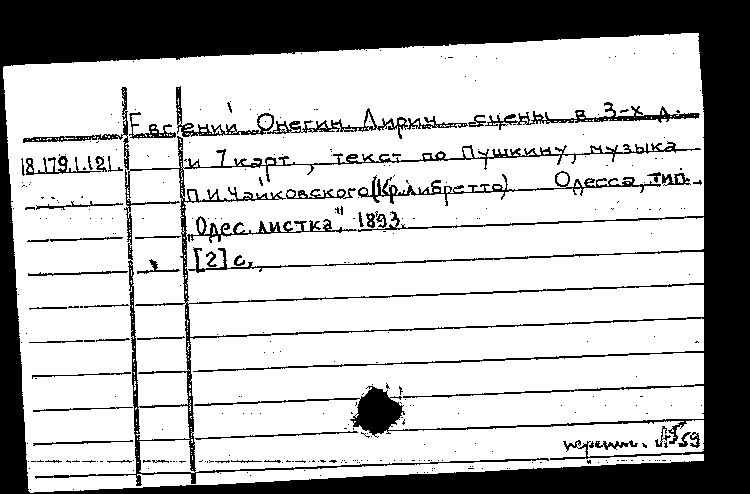 Евгений Онегин. Лирич. сцены в 3-х д.
18.179.1.121. и 7 карт., текст по Пушкину, музыка
П.И.Чайковского (Кр. либретто) Одесса, тип.
"Одес. листка", 1893.
[2] с.